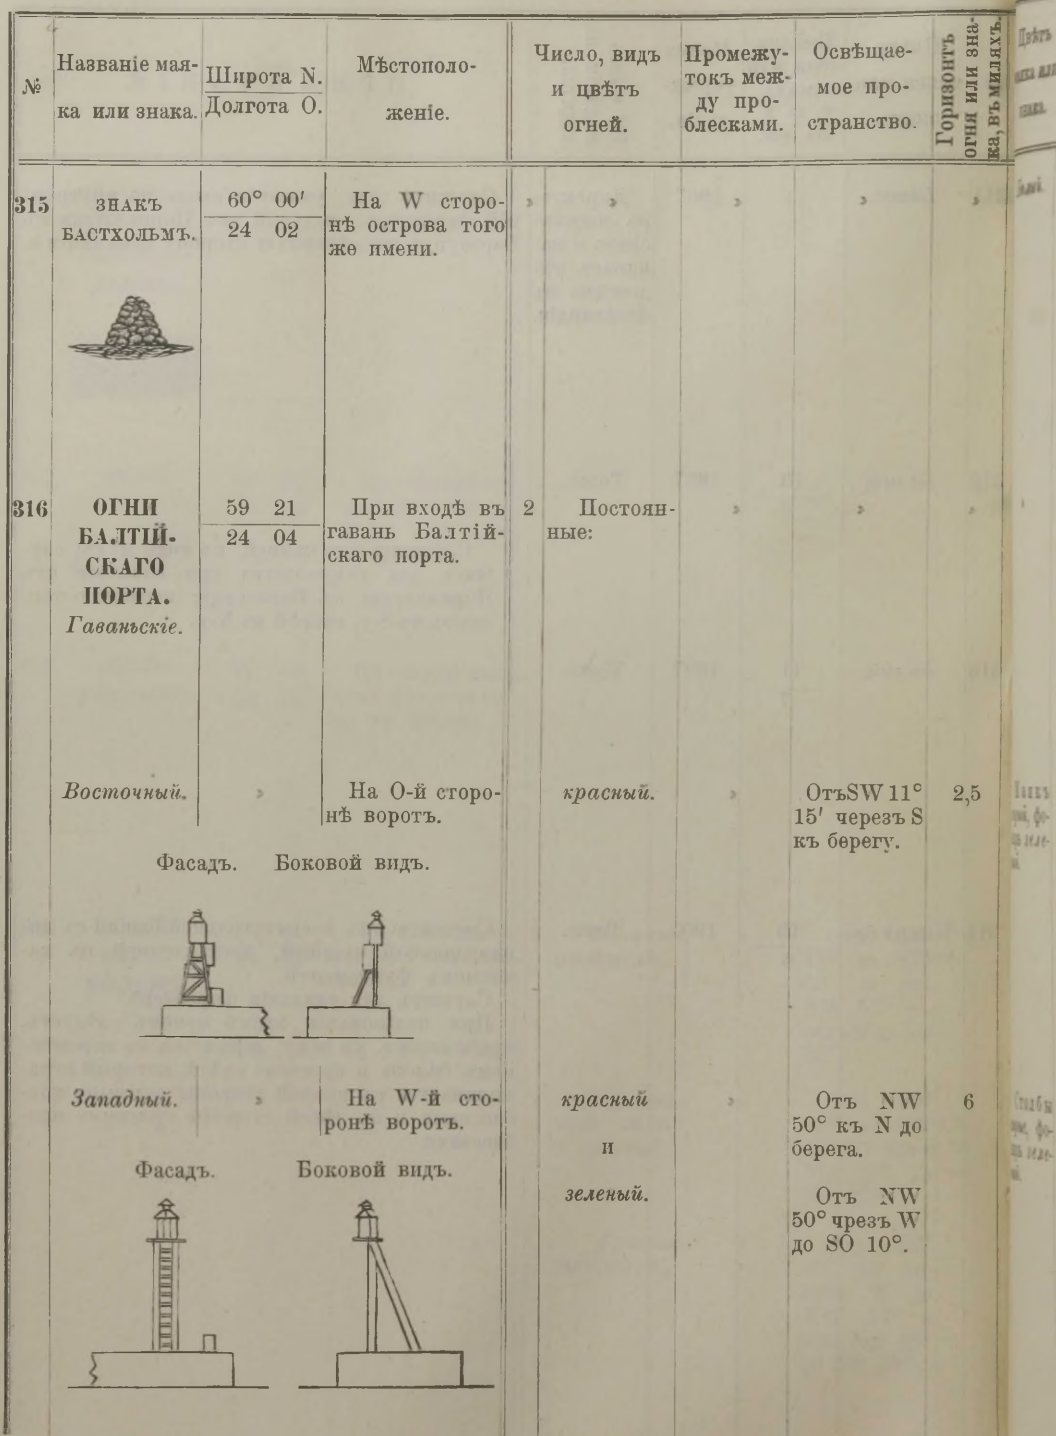 №
Названіе мая-
ка или знака.
Широта N.
Долгота O.
Мѣстополо-
женіе.
Число, видъ
и цвѣтъ
огней.
Промежу-
токъ меж-
ду про-
блесками.
Освѣщае-
мое про-
странство.
Горизонтъ
огня или зна-
ка, въ миляхъ.
Цвѣтъ
знака.
315
ЗНАКЪ
БАСТХОЛЬМЪ.
60° 00′
24 02
На W сторо-
нѣ острова того
же имени.
» » » » »
316
ОГНИ
БАЛТІЙ-
СКАГО
ПОРТА.
Гаваньскіе.
59 21
24 04
При входѣ въ
гавань Балтій-
скаго порта.
2 Постоян-
ные:
» » »
Восточный.
»
На O-й сторо-
нѣ воротъ.
красный.
»
Отъ SW 11°
15′ черезъ S
къ берегу.
2,5
Фасадъ. Боковой видъ.
Западный.
»
На W-й сто-
ронѣ воротъ.
красный
и
зеленый.
»
Отъ NW
50° къ N до
берега.
Отъ NW
50° чрезъ W
до SO 10°.
6
Фасадъ. Боковой видъ.